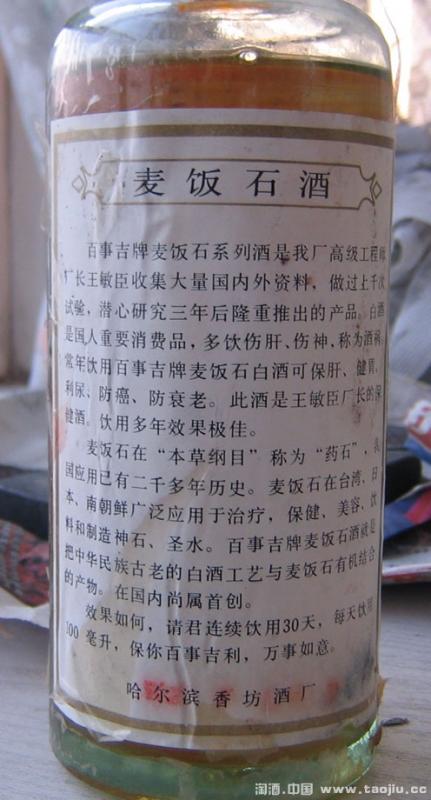 麦饭石酒
百事吉牌麦饭石系列酒是我厂高级工程师
厂长王敏臣收集大量国内外资料，做过上千次
试验，潜心研究三年后隆重推出的产品。白酒
是国人重要消费品，多饮伤肝、伤神，称为酒祸，
常年饮用百事吉牌麦饭石白酒可保肝、健胃、
利尿、防癌、防衰老。此酒是王敏臣厂长的保
健酒。饮用多年效果极佳。
麦饭石在“本草纲目”称为“药石”，我
国应用已有二千多年历史。麦饭石在台湾、日
本、南朝鲜广泛应用于治疗，保健、美容、饮
料和制造神石、圣水。百事吉牌麦饭石酒就是
把中华民族古老的白酒工艺与麦饭石有机结合
的产物。在国内尚属首创。
效果如何，请君连续饮用30天，每天饮用
100毫升，保你百事吉利，万事如意。
哈尔滨香坊酒厂
淘酒.中国 www.taojiu.cc